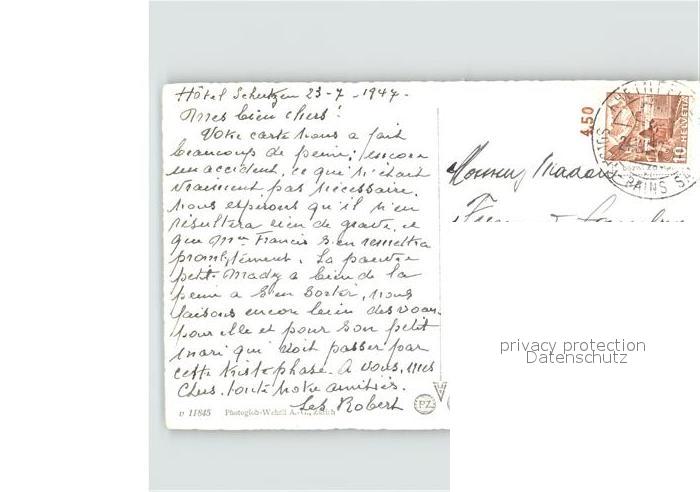 Hôtel Schutzen 23-7-1947-
Mes bien chers!
Votre carte nous a fait
beaucoup de peine; encore
un accident, ce qui n'était
vraiment pas nécessaire.
Nous espérons qu'il n'en
résultera rien de grave, et
que Mme Francis s'en remettra
promptement. La pauvre
petite Mady a bien de la
peine a s'en sortir, nous
faisons encore bien des voeux
pour elle et pour son petit
mari qui doit passer par
cette triste phase. A vous, mes
chers, toute notre amitiés.
Les Robert
v 11845 Photoglob-Wehrli A.-G., Zürich
PZ
Monsieur Madame
4.50
10 HELVETIA
privacy protection
Datenschutz